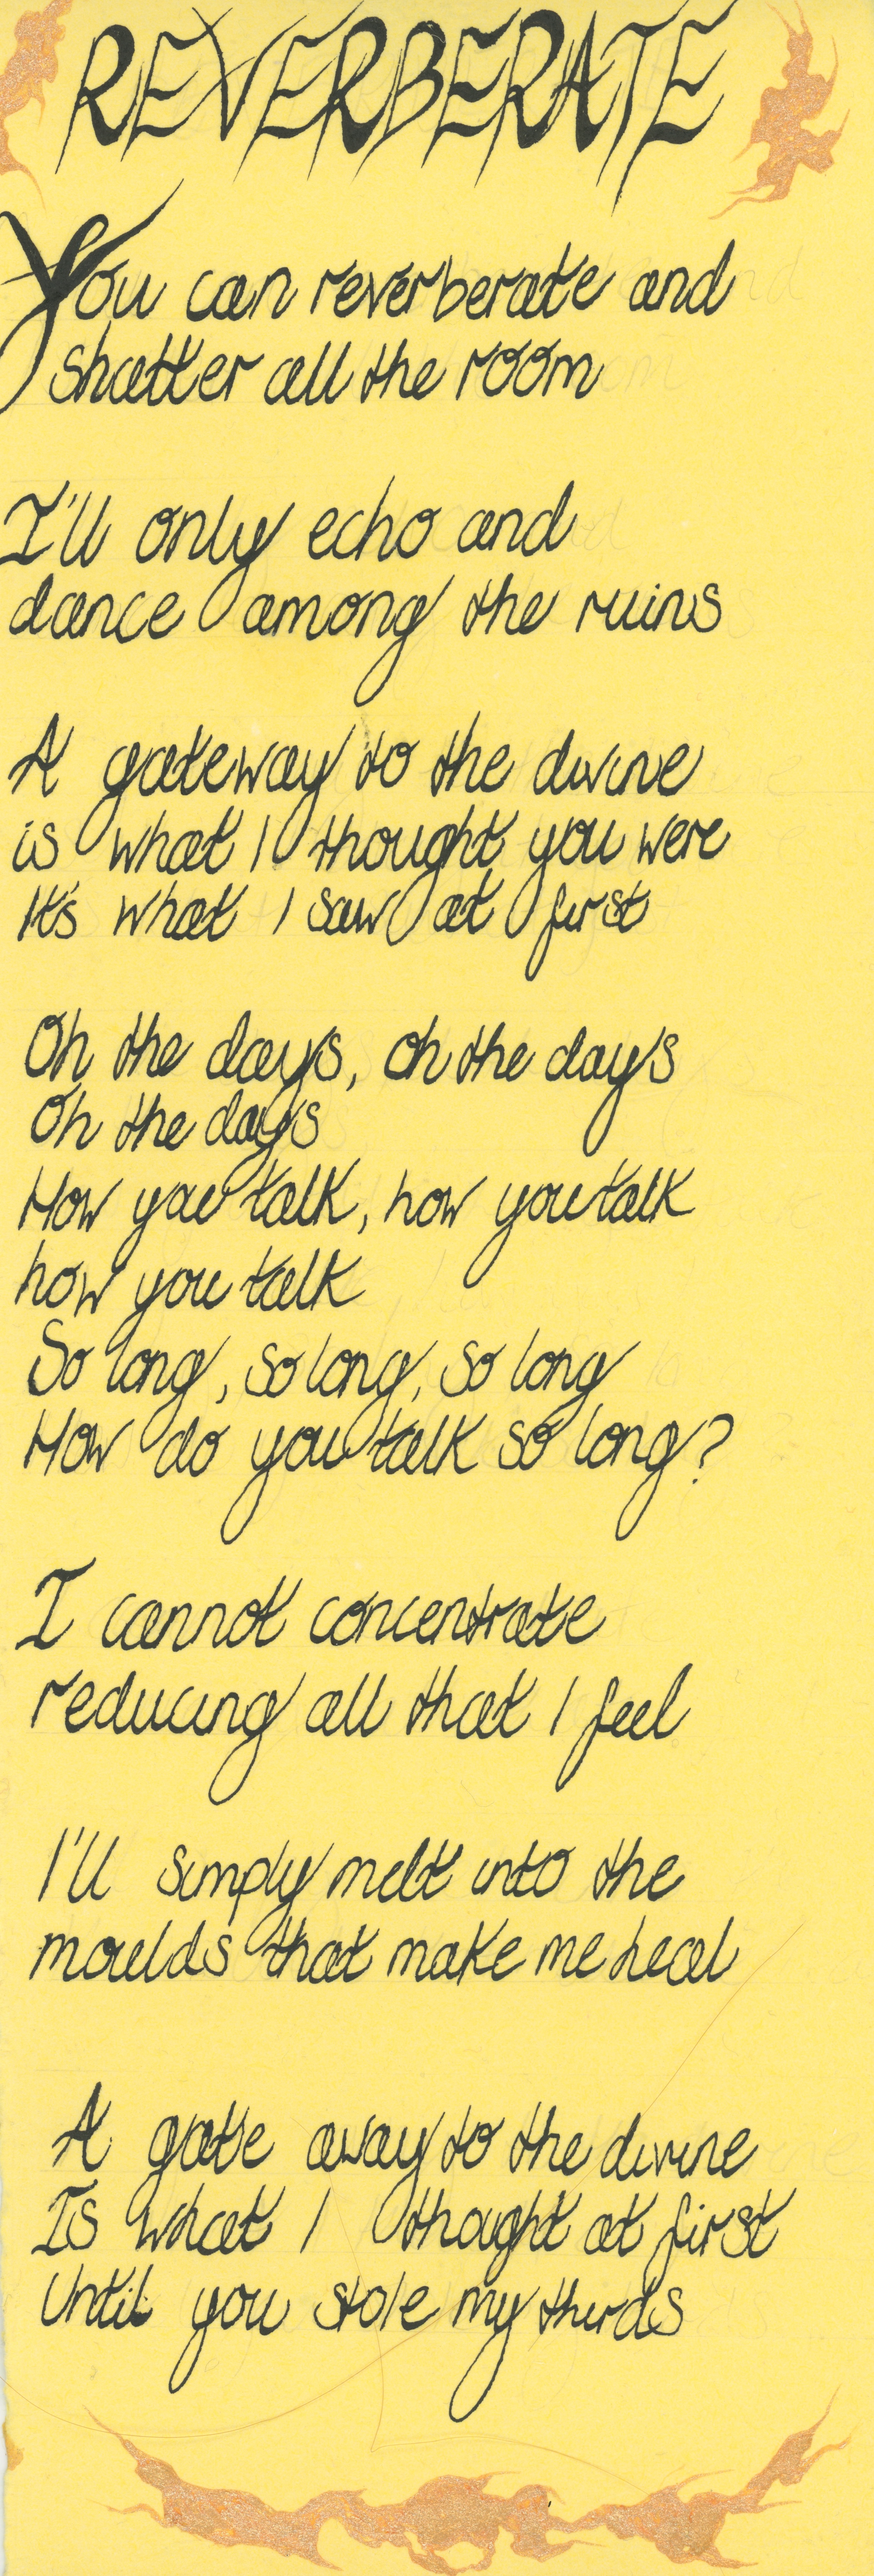 REVERBERATE
You can reverberate and
shatter all the room
I'll only echo and
dance among the ruins
A gateway to the divine
is what I thought you were
It's what I saw at first
Oh the days, oh the days
Oh the days
How you talk, how you talk
how you talk
So long, so long, so long
How do you talk so long?
I cannot concentrate
reducing all that I feel
I'll simply melt into the
moulds that make me heal
A gate away to the divine
Is what I thought at first
Until you stole my thirds